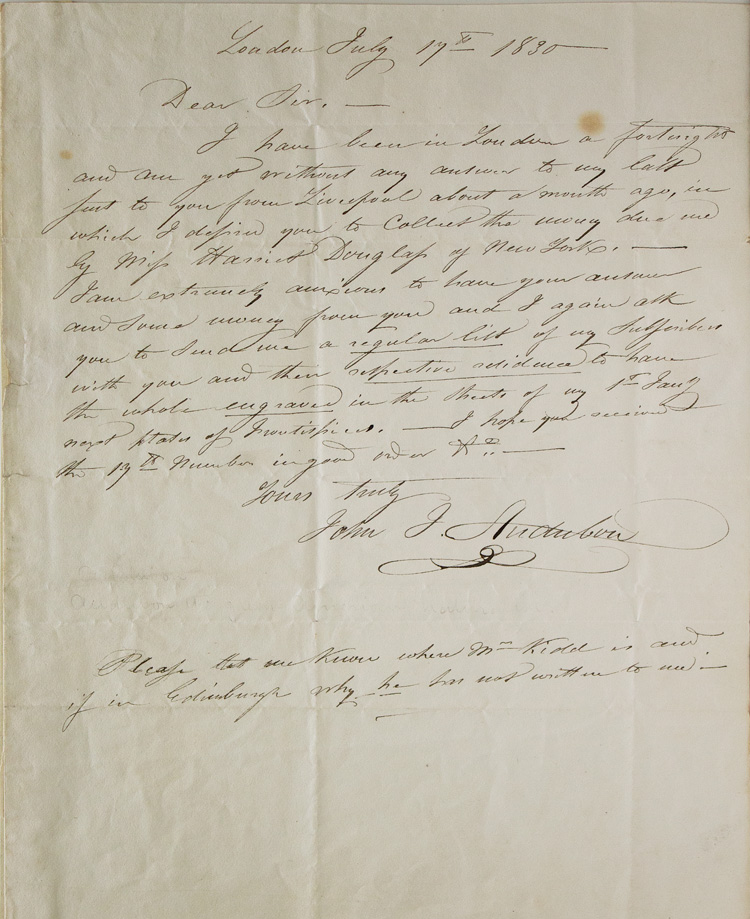 London July 17th 1830—
Dear Sir. —
I have been in London a fortnight
and am yet without any answer to my last
sent to you from Liverpool about a month ago, in
which I desired you to Collect the money due me
by Miss Harriet Douglass of New York. —
I am extremely anxious to have your answer
and some money from you and I again ask
you to send me a regular list of my Subscribers
with you and their respective residence to have
the whole engraved in the sheets of my 1st Jany
next plates of Frontispiece. — I hope you received
the 17th Number in good order &c. —
Yours truly
John J. Audubon
Please let me Know where Mr Kidd is and
if in Edinburgh why he has not written to me: —